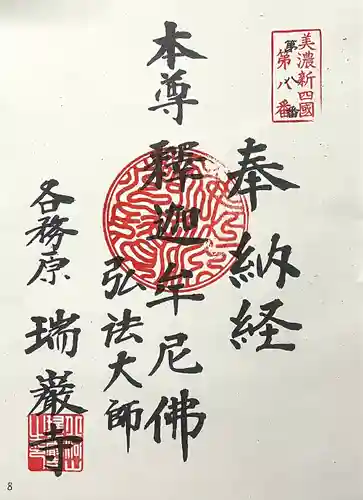 美濃新四國
第八番
第八番
奉納経
本尊 釋迦牟尼佛
弘法大師
各務原
瑞巌寺
8